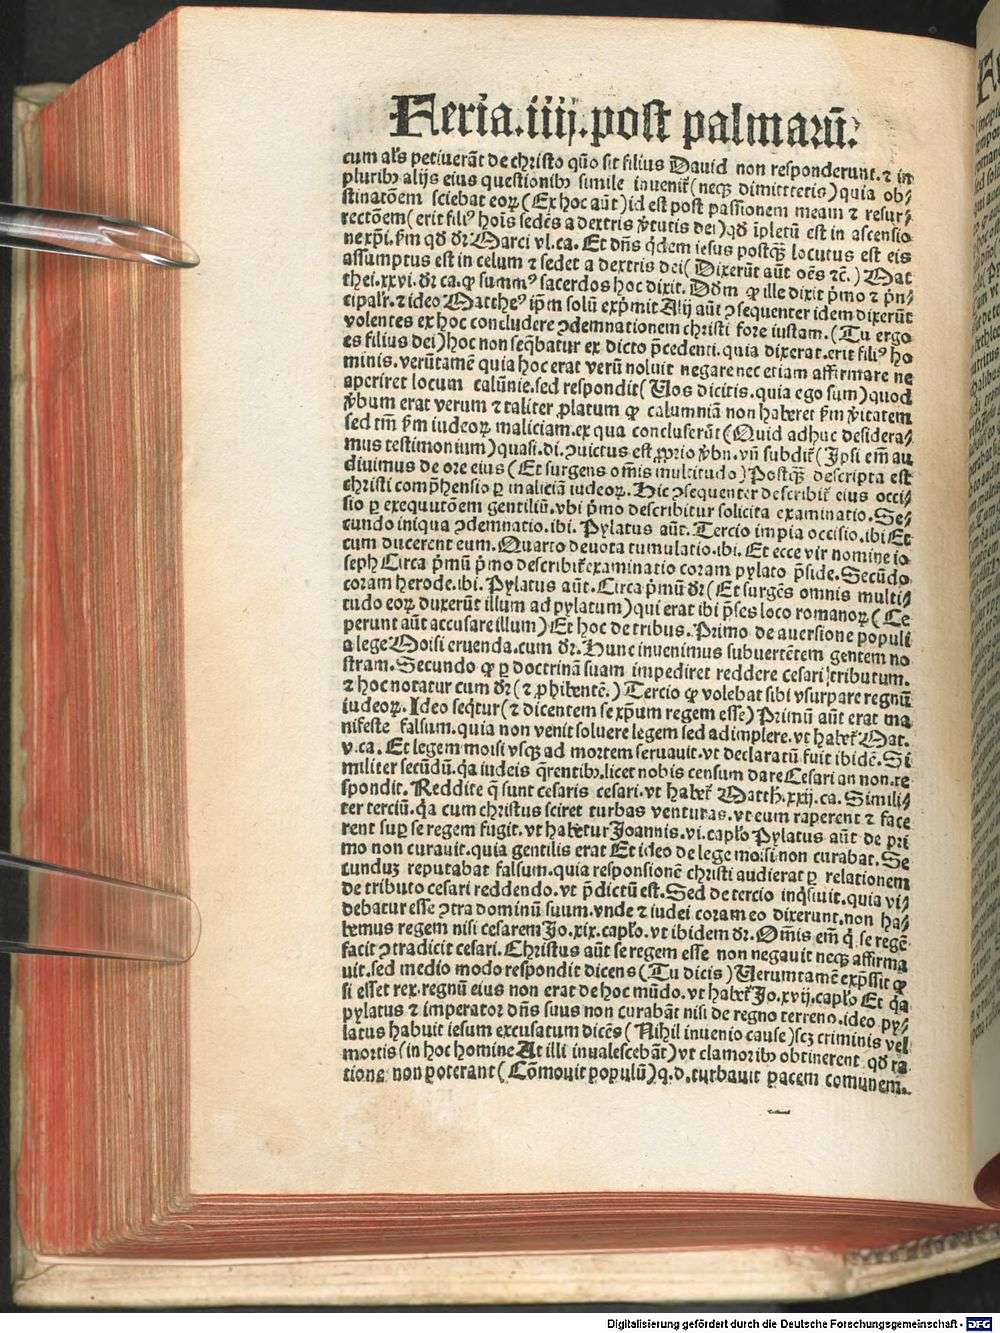 Feria.iiij.post palmarū.
cum als petiuerāt de christo quō sit filius Dauid non responderunt.⁊ in
pluribꝰ alijs eius questionibꝰ simile inuenit̄(neqꝫ dimittetis)quia ob⸗
stinatōem sciebat eoꝝ(Ex hoc aūt)id est post passionem meam ⁊ resur⸗
rectōem(erit filiꝰ hoīs sedēs a dextris v̄tutis dei)qđ īpletū est in ascensio
ne xp̄i.ẜm qđ dr̄ Marci vl.ca. Et dn̄s q̇dem iesus postqꝫ locutus est eis
assumptus est in celum ⁊ sedet a dextris dei(Dixerūt aūt oēs ⁊c̄.)Mat
thei.xxvi. dr̄ ca.ꝙ summꝰ sacerdos hoc dixit. Dōm ꝙ ille dixit p̄mo ⁊ p̄n⸗
cipalr̄.⁊ ideo Mattheꝰ ip̄m solū exp̄mit Alij aūt ꝯsequenter idem dixerūt
volentes ex hoc concludere ꝯdemnationem christi fore iustam.(Tu ergo
es filius dei)hoc non seq̄batur ex dicto p̄cedenti.quia dixerat.erit filiꝰ ho
minis.verūtamē quia hoc erat verū noluit negare nec etiam affirmare ne
aperiret locum calūnie.sed respondit(Uos dicitis.quia ego sum)quod
v̄bum erat verum ⁊ taliter ꝓlatum ꝙ calumniā non haberet ẜm v̄itatem
sed tm̄ ẜm iudeoꝝ maliciam.ex qua concluserūt(Quid adhuc desidera⸗
mus testimonium)quasi.di.ꝯuictus est ꝓprio v̄bo.vn̄ subdit̄(Ipsi em̄ au
diuimus de ore eius(Et surgens om̄is multitudo)Postqꝫ descripta est
christi comp̄hensio ꝑ maliciā iudeoꝝ.Hic ꝯsequenter describit̄ eius occi⸗
sio ꝑ exequutōem gentiliū.vbi p̄mo describitur solicita examinatio.Se⸗
cundo iniqua ꝯdemnatio.ibi. Pylatus aūt. Tercio impia occisio.ibi Et
cum ducerent eum. Quarto deuota tumulatio.ibi. Et ecce vir nomine io
seph Circa p̄mū p̄mo describit̄ examinatio coram pylato p̄side.Secūdo
coram herode.ibi. Pylatus aūt.Circa p̄mū dr̄(Et surgēs omnis multi⸗
tudo eoꝝ duxerūt illum ad pylatum)qui erat ibi p̄ses loco romanoꝝ(Ce
perunt aūt accusare illum)Et hoc de tribus.Primo de auersione populi
a lege Moisi eruenda.cum dr̄.Hunc inuenimus subuertētem gentem no
stram.Secundo ꝙ ꝑ doctrinā suam impediret reddere cesari tributum.
⁊ hoc notatur cum dr̄(⁊ ꝓhibentē.)Tercio ꝙ volebat sibi vsurpare regnū
iudeoꝝ.Ideo seq̄tur(⁊ dicentem se xp̄um regem esse)Primū aūt erat ma
nifeste falsum.quia non venit soluere legem sed adimplere.vt habet̄ Mat.
v.ca. Et legem moisi vsqꝫ ad mortem seruauit.vt declaratū fuit ibidē.Si
militer secūdū.q̇a iudeis q̄rentibꝰ.licet nobis censum dare Cesari an non.re
spondit.Reddite q̄ sunt cesaris cesari.vt habet̄ Matth.xxij.ca.Simili⸗
ter terciū.q̇a cum christus sciret turbas venturas.vt eum raperent ⁊ face
rent suꝑ se regem fugit.vt habetur Joannis.vi.caplo Pylatus aūt de pri
mo non curauit.quia gentilis erat Et ideo de lege moisi non curabat.Se
cunduꝫ reputabat falsum.quia responsionē christi audierat ꝑ relationem
de tributo cesari reddendo.vt p̄dictū est.Sed de tercio inq̇siuit.quia vi⸗
debatur esse ꝯtra dominū suum.vnde ⁊ iudei coram eo dixerunt.non ha⸗
bemus regem nisi cesarem Jo.xix.caplo.vt ibidem dr̄.Om̄is em̄ q̇ se regē
facit ꝯtradicit cesari.Christus aūt se regem esse non negauit neqꝫ affirma
uit.sed medio modo respondit dicens(Tu dicis)Uerumtamē exp̄ssit ꝙ
si esset rex.regnū eius non erat de hoc mūdo.vt habet̄ Jo.xvij.caplo Et q̇a
pylatus ⁊ imperator dn̄s suus non curabāt nisi de regno terreno.ideo py⸗
latus habuit iesum excusatum dicēs(Nihil inuenio cause)scꝫ criminis vel
mortis(in hoc homine At illi inualescebāt)vt clamoribꝰ obtinerent qđ ra
tione non poterant(Cōmouit populū)q.d.turbauit pacem comunem.
Digitalisierung gefördert durch die Deutsche Forschungsgemeinschaft - DFG